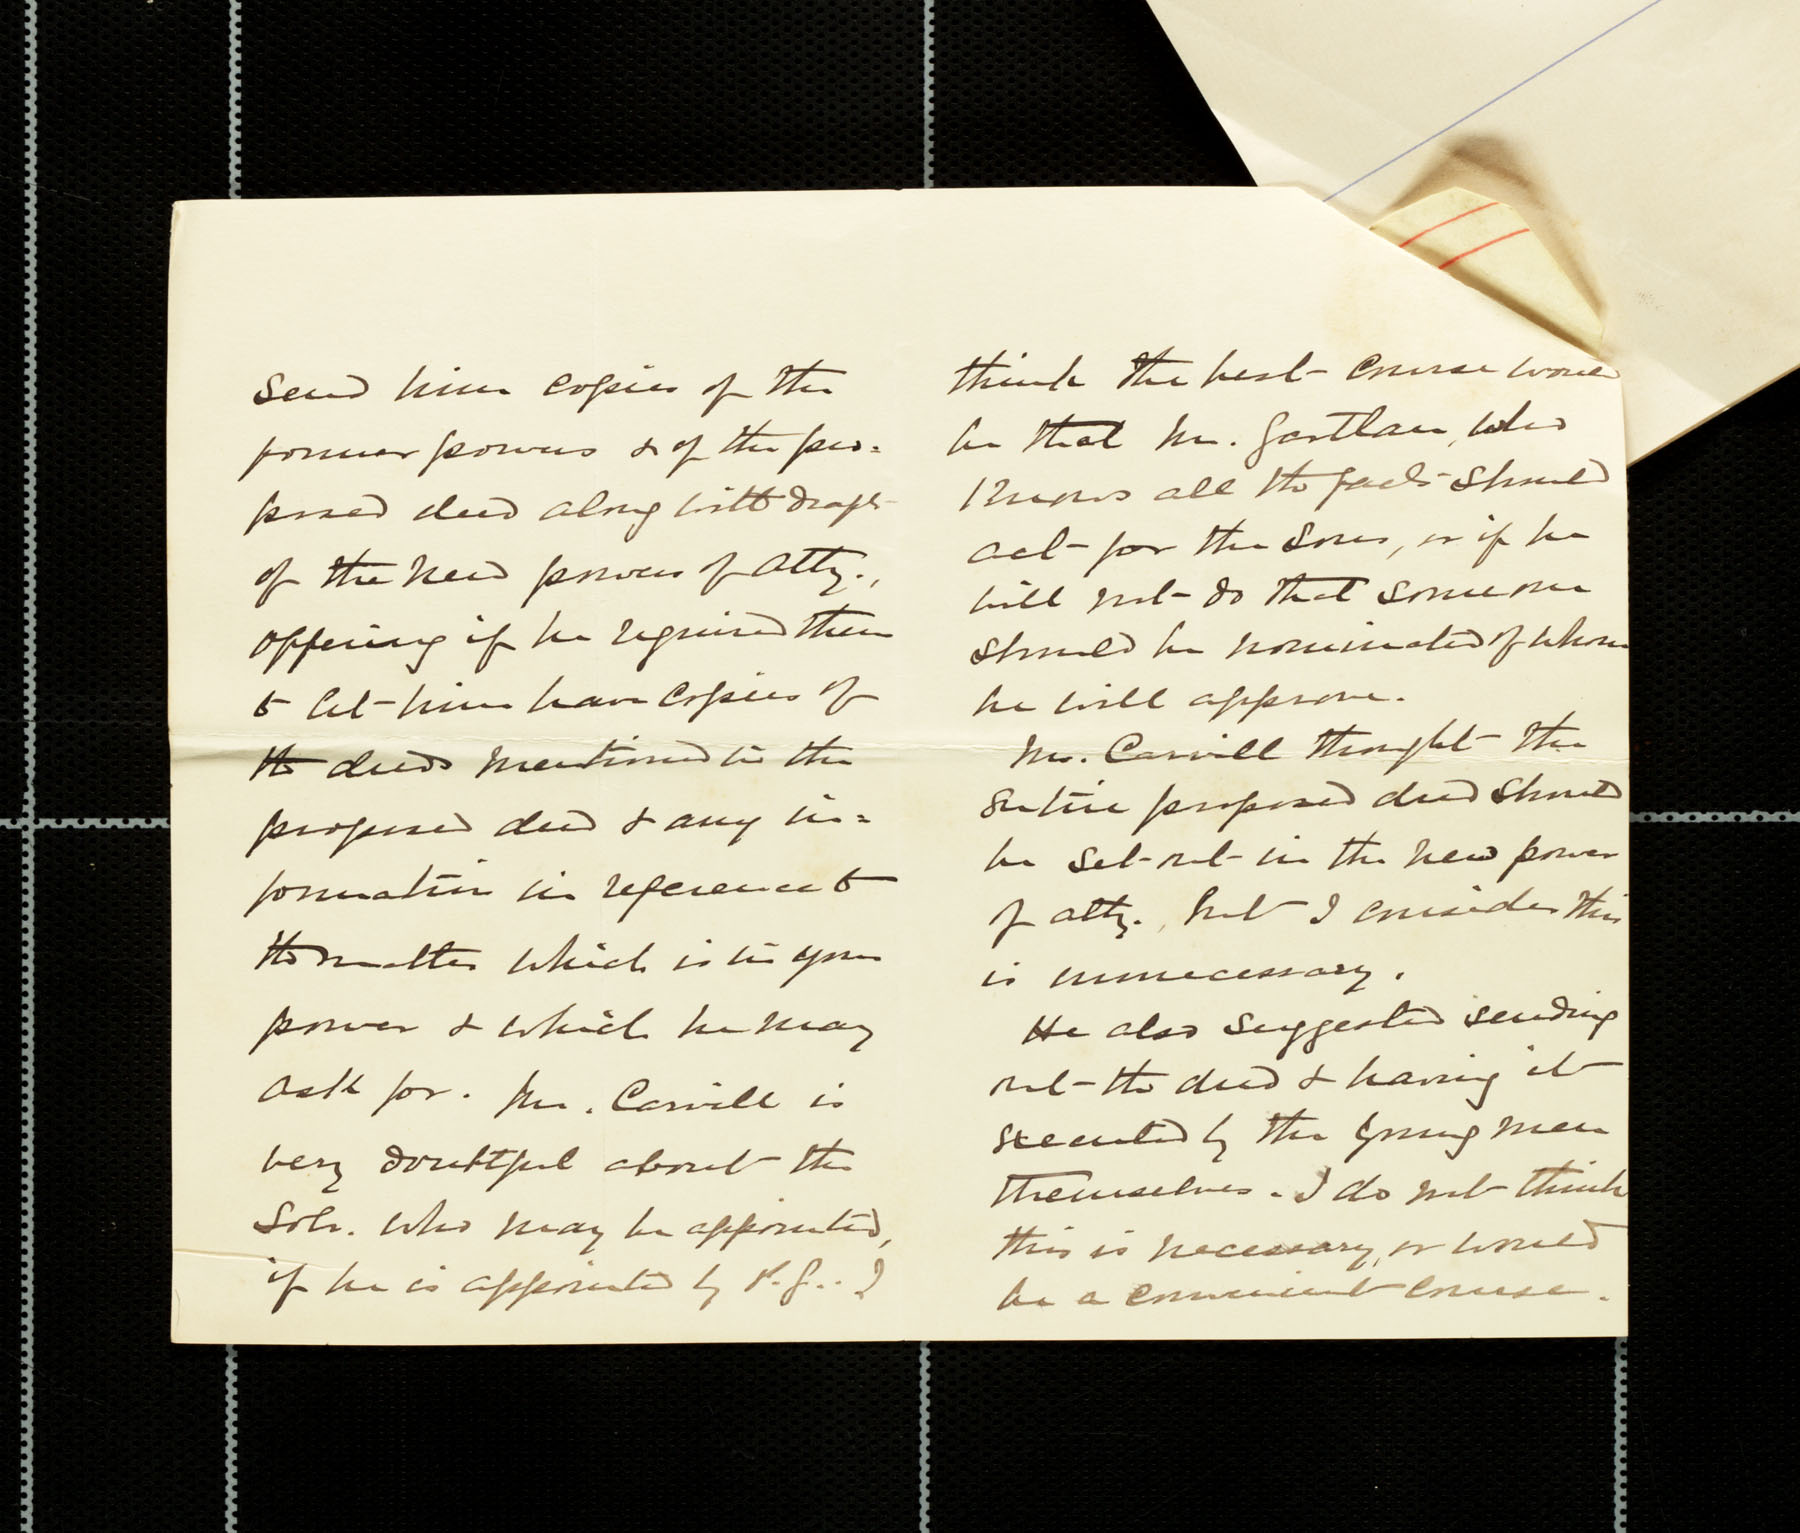 send him copies of the
former powers & of the pro=
posed deed along with draft
of the new powers of atty.,
offering if he required them
to let him have copies of
the deeds mentioned in the
proposed deed & any in=
formation in reference to
the matter which is in your
power & which he may
ask for. Mr. Carvill is
very doubtful about the
Solr. who may be appointed,
if he is appointed by P.G.. I
think the best course would
be that Mr. Gartlan, who
knows all the facts should
act for the Sons, or if he
will not do that someone
should be nominated of whom
he will approve.
Mr. Carvill thought the
entire proposed deed should
be set out in the new power
of atty., but I consider this
is unnecessary.
He also suggested sending
out the deed & having it
executed by the young men
themselves. I do not think
this is necessary, or would
be a convenient course.